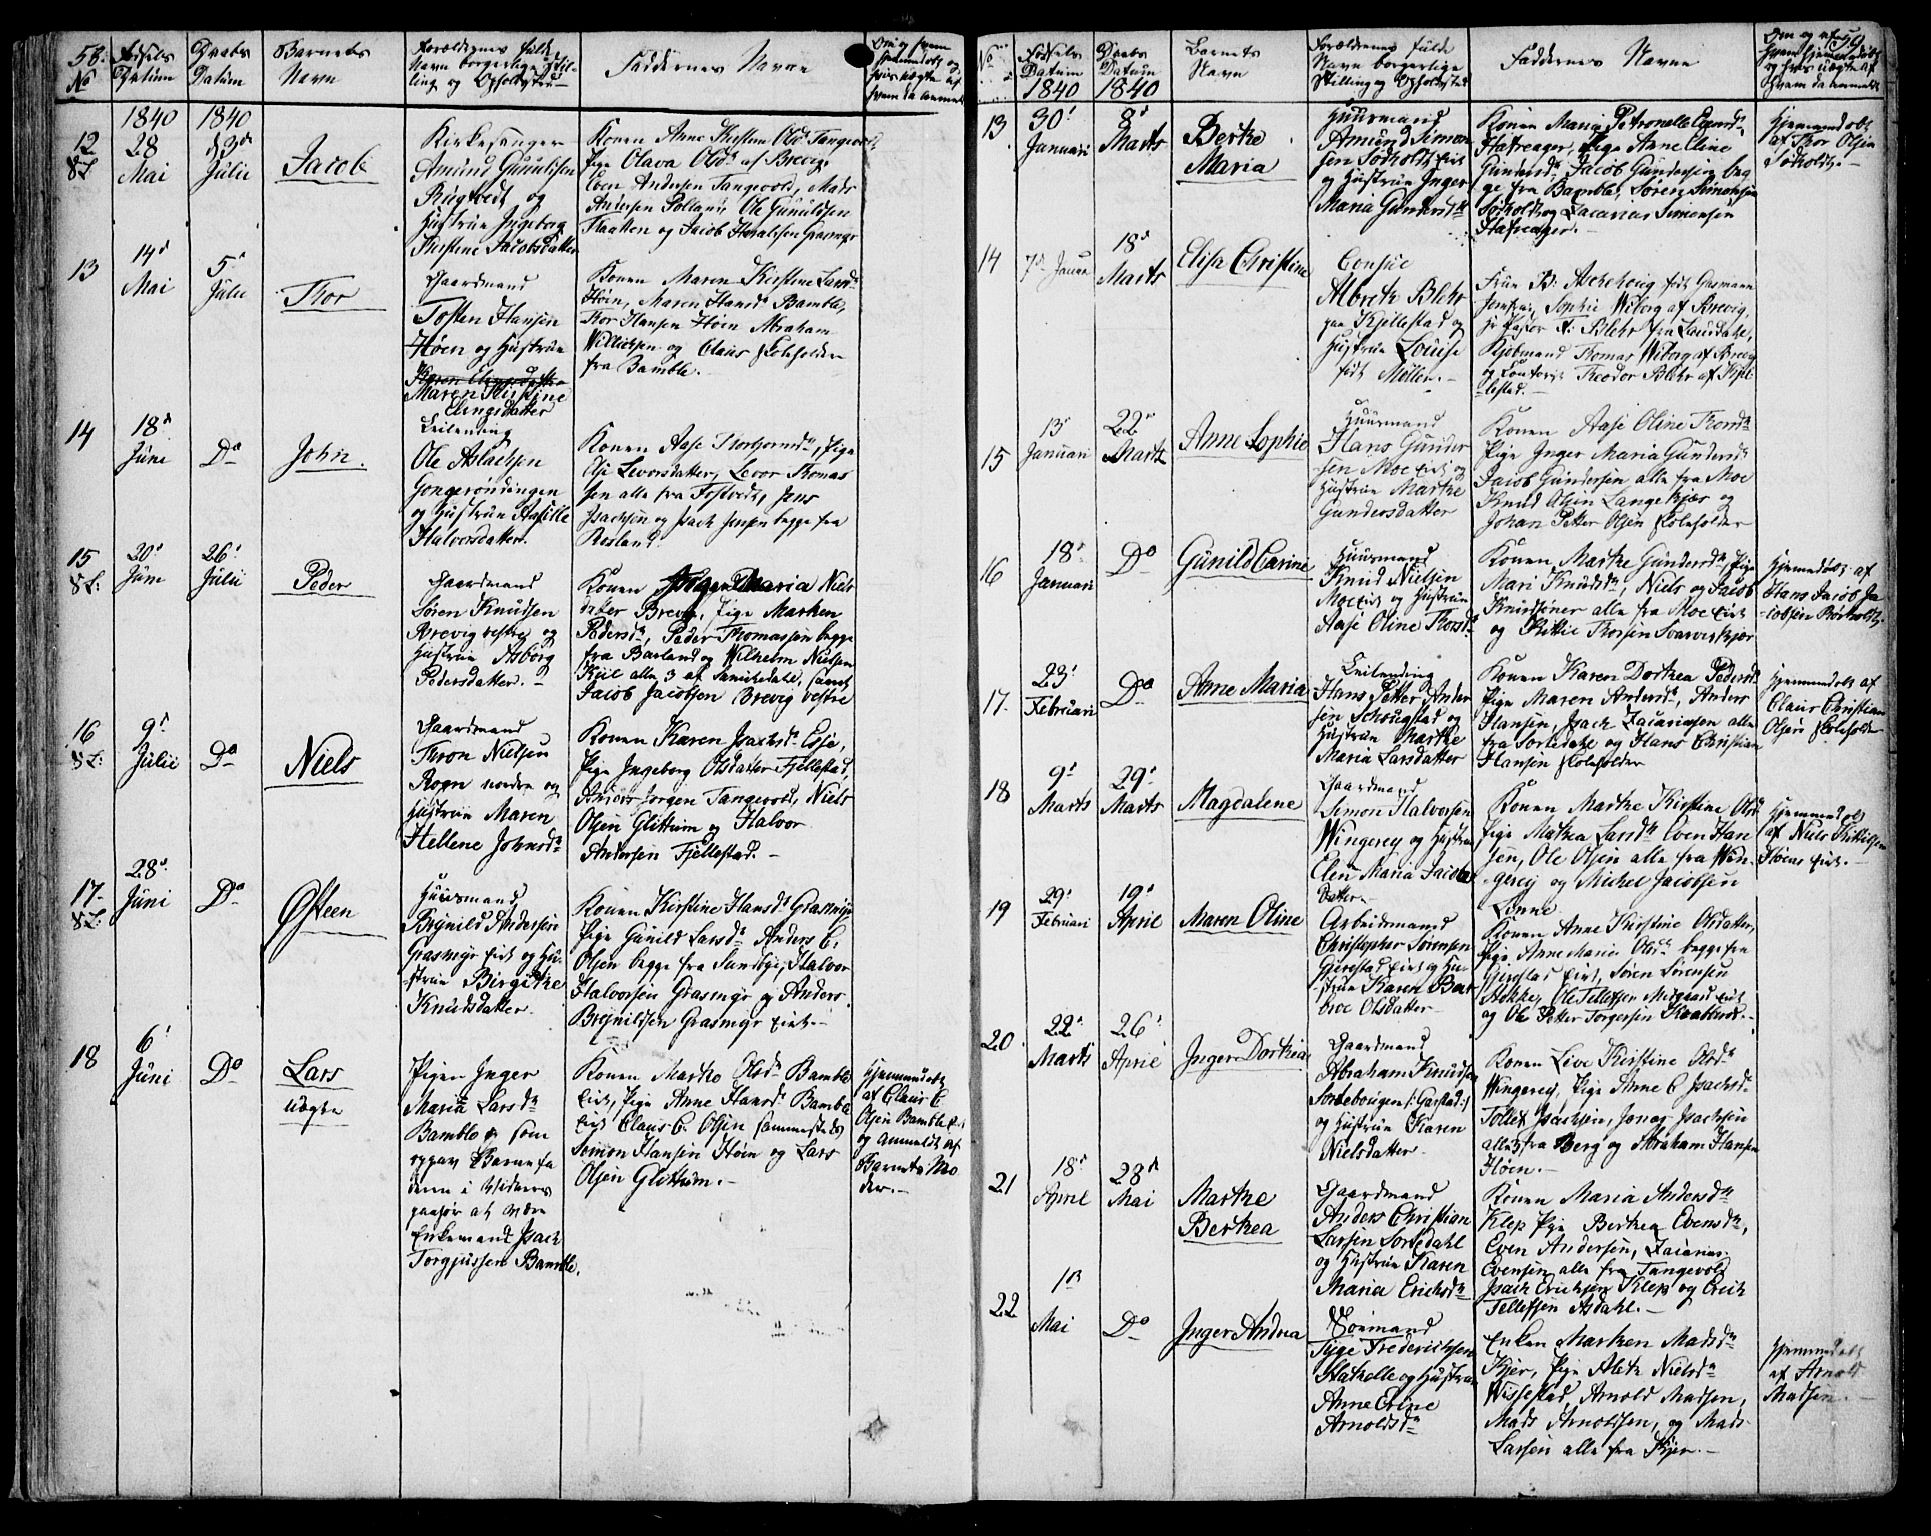 58.
No
Fødsels
Datum
Daabs
Datum
Barnets
Navn
Forældrenes fulde
Navn borgerlige Stil-
ling og Opholdsted
Faddernes Navne
1840
1840
12
28
Mai
d 3d
Julii
Jacob
Kirkesanger
Amund Gunulfsen
Rugtvedt og
Hustrue Ingeborg
Kirstine Jacobsdatter
Konen Anne Kirstine Olsd. Tangevold,
Pige Olava Olsd. af Brevig,
Even Andersen Tangevold, Mads
Andersen Solland, Ole Gunulfsen
Traatten og Jacob
13
14d
Mai
5d
Julii
Thor
Gaardmand
Tosten Hansen
Høen og Hustrue
Maren Kirstine
Elingsdatter
Konen Maren Kirstine Larsd.
Høen, Maren Hansd. Bamble,
Thor Hansen Høen Abraham
Willichsen og Claus Eoleholder
fra Bamble.
14
18d
Juni
Do
John.
Leilending
Ole Aslaksen
Gongerøndingen
og Hustrue
Halvorsdatter.
Konen Aase Thorbjørnsd., Pige
Levorsdatter, Levor Thomas
sen alle fra Tostvedt, Jens
Isachsen og Isach Jensen begge fra
15
20d
Juni
26d
Julii
Peder
Gaardmand
Søren Knudsen
Brevig vestre og
Hustrue Asborg
Pedersdatter.
Konen Inger Maria Niels
datter Brevig, Pige Marthea
Pedersd., Peder Thomassen begge
fra Barland og Wilhelm Nielsen
Kiil alle 3 af Sannikedahl, samt
Jacob Jacobsen Brevig vestre
16
9d
Julii
Do
Niels
Gaardmand
Thron Nielsen
Rogn nordre og
Hustrue Maren
Hellene Johnsd.
Konen Karen Isachsd. Esje,
Pige Ingeborg Olsdatter Fjellestad,
Anders Jørgen Tangevold, Niels
Olsen Glittrum og Halvor
Andersen Fjellestad.
17
28d
Juni
Do
Østeen
Huusmand
Brynild Andersen
Grasmyr Eiet og Hu-
strue Birgithe
Knudsdatter
Konen Kirstine Hansd. Grasmyr
Pige Gunild Larsd. Anders C.
Olsen begge fra Sundbye, Halvor
Halvorsen Grasmyr og Anders
Brynildsen Grasmyr Eiet.
18
6d
Juni
Do
Lars
uægte
Pigen Inger
Maria Larsd.
Bamble som
opgav Barnefa
deren i Vidners
paahør at være
Enkemand Isach
Torgjussen Bamble.
Konen Marthe Olsd. Bamble
Eiet, Pige Anne Hansd. Bamble
Eiet Claus C. Olsen sammesteds
Simon Hansen Høen og Lars
Olsen Glittrum.
Hjemmedøbt
af Claus C
Olsen Bamble Eiet
og anmeldt af
Barnets Mo
der.
59
No
Fødsels
Datum
1840
Daabs
Datum
1840
Barnets
Navn
Forældrenes fulde
Navn borgerlige
Stilling og Opholdsted
Faddernes Navne
Om og af
hvem hjemmedøbt
og hvis uægte af
hvem da anmeldt
13
30d
Januari
8d
Marts
Berthe
Maria
Huusmand
Amund Simon
sen Tødholdt Eiet
og Hustrue Inger
Maria Gundersd.
Konen Maria Petronelle
Hafreager, Pige Anne Eline
Gundersd. Jacob Gundersen beg
ge fra Bamble, Søren Simonsen
og Zacarias Simonsen
Hafreager.
Hjemmedøbt
af Thor Olsen
Tødholdt.
14
7d Janua
18d
Marts
Elise Christine
Consul
Albreth Blehr
paa Kjellestad og
Hustrue Louise
født Møller.
Frue B: født
Jomfrue Sophie Wiborg af Brevig,
Hr Pastor Blehr fra
Kjøbmand Thomas Wiborg af Brevig
og Contorist Theodor Blehr af Kjel-
lestad.
15
13d
Januari
22d
Marts
Anne Sophie
Huusmand
Hans Gunder
sen Moe Eiet og
Hustrue Marthe
Gundersdatter
Konen Aase Oline Thorsd.
Pige Inger Maria Gundersd.
Jacob Gundersen alle fra Moe
Knud Olsen Langekjær og
Johan Petter Olsen Eoleholder
16
18d
Januari
Do
Gunild Carine
Huusmand
Knud Nielsen
Moe Eiet og Hustrue
Aase Oline Thorsd.
Konen Marthe Gundersd. Pige
Mari Knudsd., Niels og Jacob
Knudsener alle fra Moe Eiet
og Kittil Thorsen Svarviskjær
Hjemmedøbt af
Hans Jacob Ja
cobsen Rørholdt.
17.
23d
Februari
Do
Anne Maria
Leilending
Hans Petter Ander
sen Schougstad og
Hustrue Marthe
Maria Larsdatter
Konen Karen Dorthea Pedersd.
Pige Maren Andersd., Anders
Hansen, Isach Zacariasen alle
fra Sortedahl og Hans Christian
Hansen Eoleholder
Hjemmedøbt af
Claus Christian
Olsen Eoleholder
18
9d
Marts
29d
Marts
Magdalene
Gaardmand
Simon Halvorsen
Wingerej og Hustrue
Elen Maria Jacobs
datter
Konen Marthe Kirstine Olsd.
Pige Mathea Larsd. Even Han
sen, Ole Olsen alle fra Win
gerej og Michel Jacobsen
Linne
Hjemmedøbt
af Niels Kittilsen
Høens Eiet.
19
29d
Februari
19d
April
Maren Oline
Arbeidsmand
Christopher Sørensen
Gjerestad Eiet og Hu-
strue Karen Bar
broe Olsdatter
Konen Anne Kirstine Olsdatter,
Pige Anne Maria Olsd. begge fra
Gjerestad Eiet, Søren Sørensen
Stokke, Ole Tellefsen Eiet
og Ole Petter Torgersen
20
22d
Marts
26d
April
Inger Dorthea
Gaardmand
Abraham Knudsen
og Hustrue Karen
Nielsdatter
Konen Live Kirstine Olsd.
Wingerej, Pige Anne C. Isachsd.
Tollef Isachsen, Jonas Isachsen
alle fra Berg og Abraham Hansen
Høen.
21
18d
April
28d
Mai
Marthe
Berthea
Gaardmand
Anders Christian
Larsen Sortedahl
og Hustrue Karen
Maria Ericksd.
Konen Maria Andersd.
Klep Pige Berthea Evensd.,
Even Andersen, Zacarias
Evensen alle fra Tangevold
Isach Ericksen Klep og Erick
Tellefsen Asdahl.
22
1d
Mai
Do
Inger Andrea
Søemand
Tyge Frederichsen
Stathelle og Hustrue
Anne Eline
Arnoldsd.
Enken Marthea Madsd.
Skjer, Pige Aleth Nielsd.
Wissestad, Arnold Madsen,
Mads Arnoldsen, og Mads
Larsen alle fra Skjer.
Hjemmedøbt
af Arnold
Madsen.